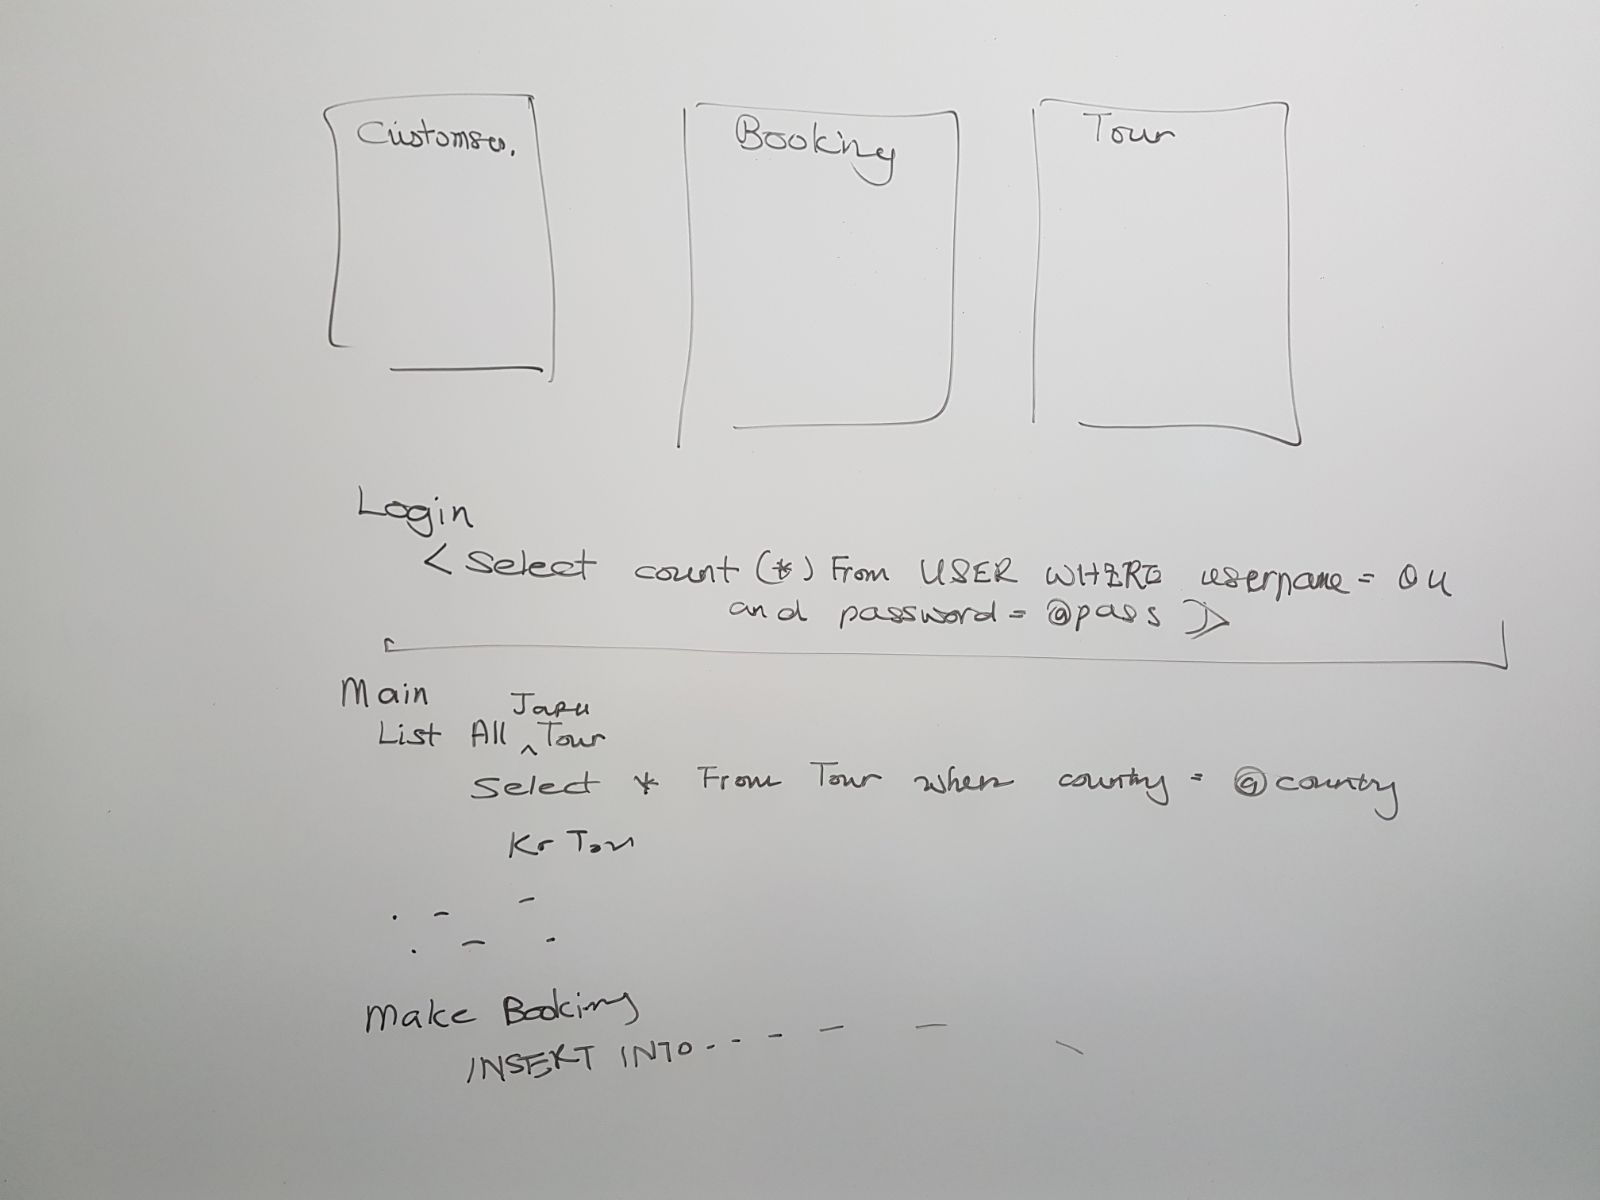 Customer.
Booking
Tour
Login
< Select count (*) From USER WHERE username = @u
and password = @pass >>
Main
Japu
List All ^ Tour
Select * From Tour where country = @country
Kr Tour
. - -
. - -
Make Booking
INSERT INTO - - - - - -